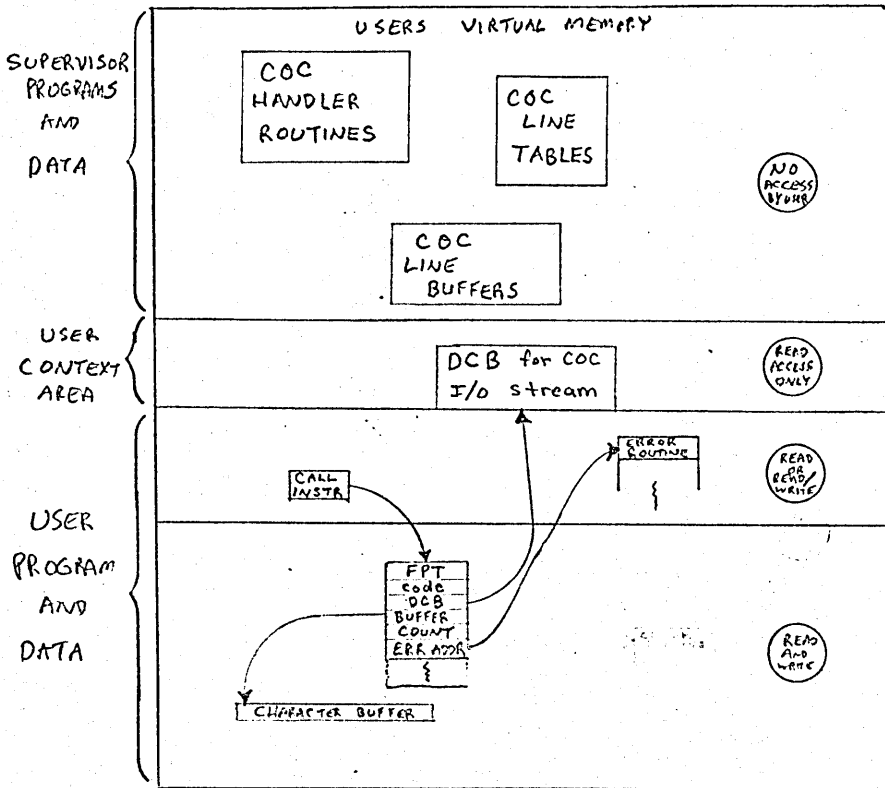 USERS VIRTUAL MEMORY
SUPERVISOR
PROGRAMS
AND
DATA
COC
HANDLER
ROUTINES
COC
LINE
TABLES
NO
ACCESS
BY USR
COC
LINE
BUFFERS
USER
CONTEXT
AREA
DCB for COC
I/O stream
READ
ACCESS
ONLY
USER
PROGRAM
AND
DATA
CALL
INSTR
ERROR
ROUTINE
READ
OR
READ/
WRITE
FPT
code
DCB
BUFFER
COUNT
ERR ADDR
READ
AND
WRITE
CHARACTER BUFFER